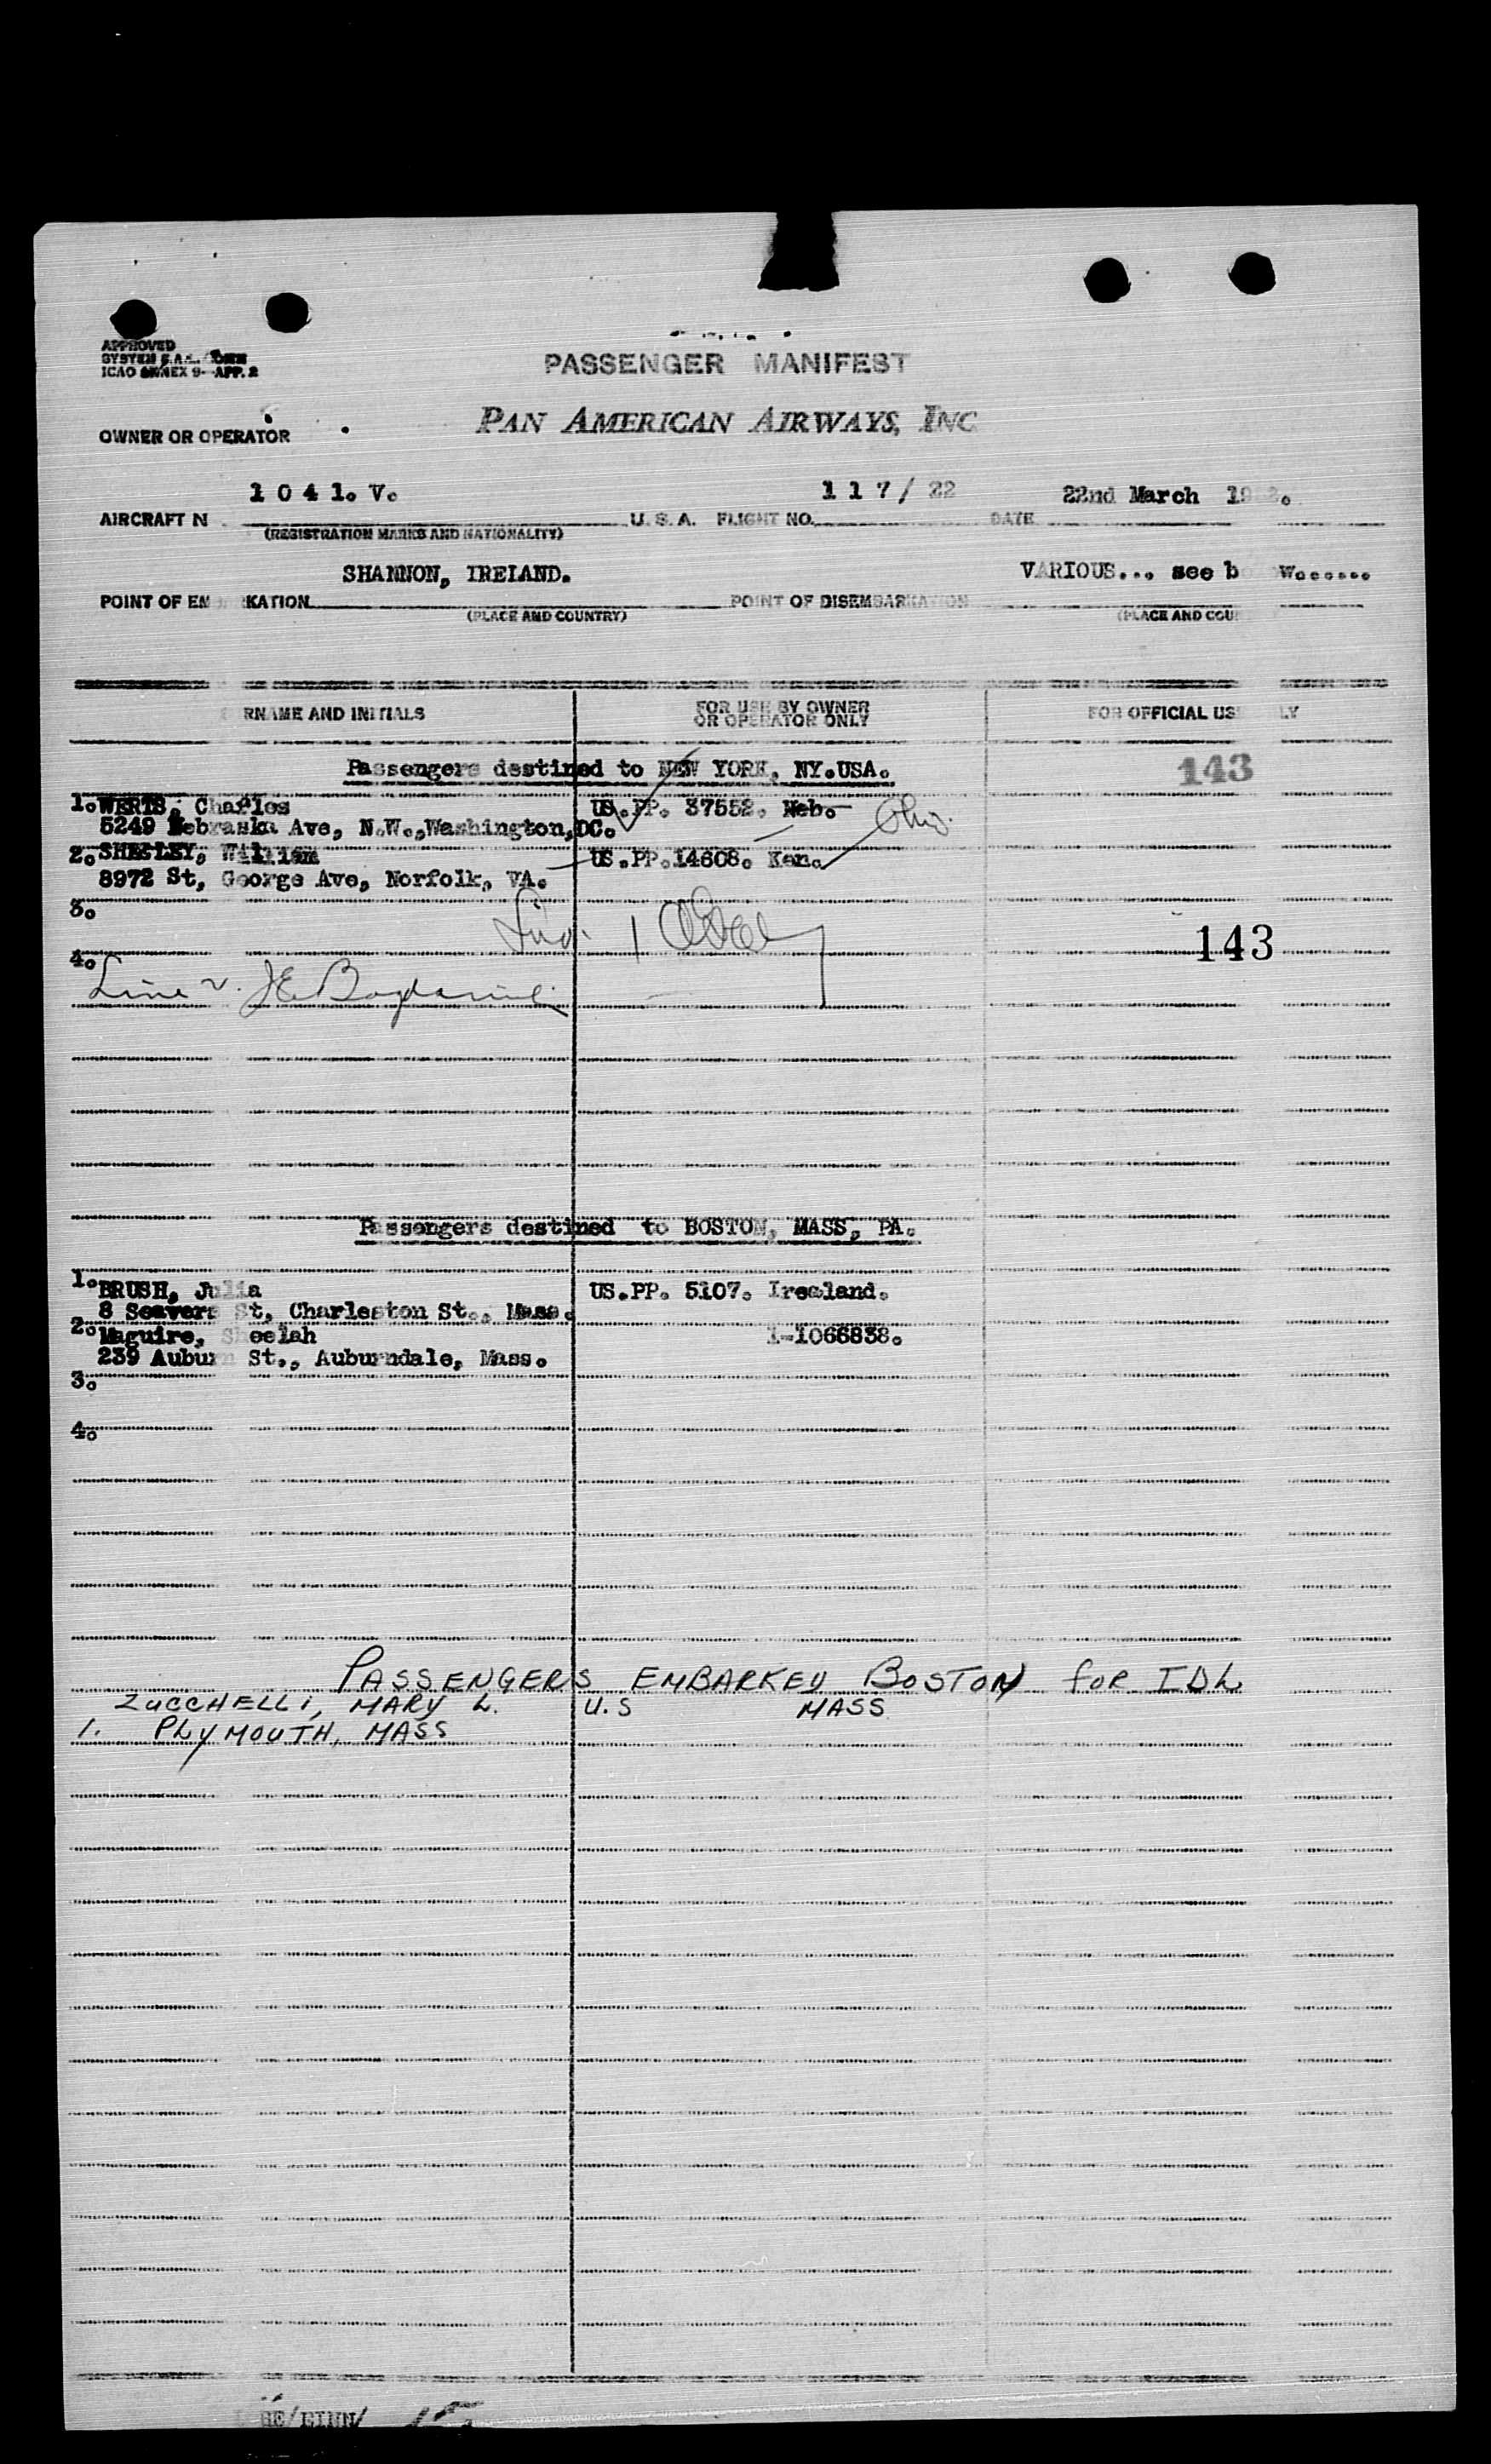 APPROVED
ICAO ANNEX 9- APP. 2
PASSENGER MANIFEST
PAN AMERICAN AIRWAYS, INC
OWNER OR OPERATOR
1 0 4 1. V. 1 1 7 / 22 22nd March
AIRCRAFT N U. S. A. FLIGHT NO. DATE
(REGISTRATION MARKS AND NATIONALITY)
SHANNON, IRELAND. VARIOUS... see b w......
POINT OF EM RKATION POINT OF DISEMBARKATION
(PLACE AND COUNTRY) (PLACE AND COU
RNAME AND INITIALS FOR USE BY OWNER OR OPERATOR ONLY FOR OFFICIAL US LY
Passengers destined to NEW YORK, NY.USA. 143
1. WERTS, Charles US.PP. 37552. Neb. Ohio.
5249 Nebraska Ave, N.W.,Washington,DC.
2. SHEGLEY, William US.PP.14608. Ken.
8972 St, George Ave, Norfolk, VA.
3.
143
4.
Line
Passengers destined to BOSTON, MASS, PA.
1. BRUSH, Julia US.PP. 5107. Irealand.
8 Seavers St, Charleston St., Mass.
2. Maguire, Sheelah 1-1066838.
239 Auburn St., Auburndale, Mass.
3.
4.
PASSENGERS EMBARKED BOSTON for IDL
ZUCCHELLI, MARY L. U.S MASS
1. PLYMOUTH, MASS